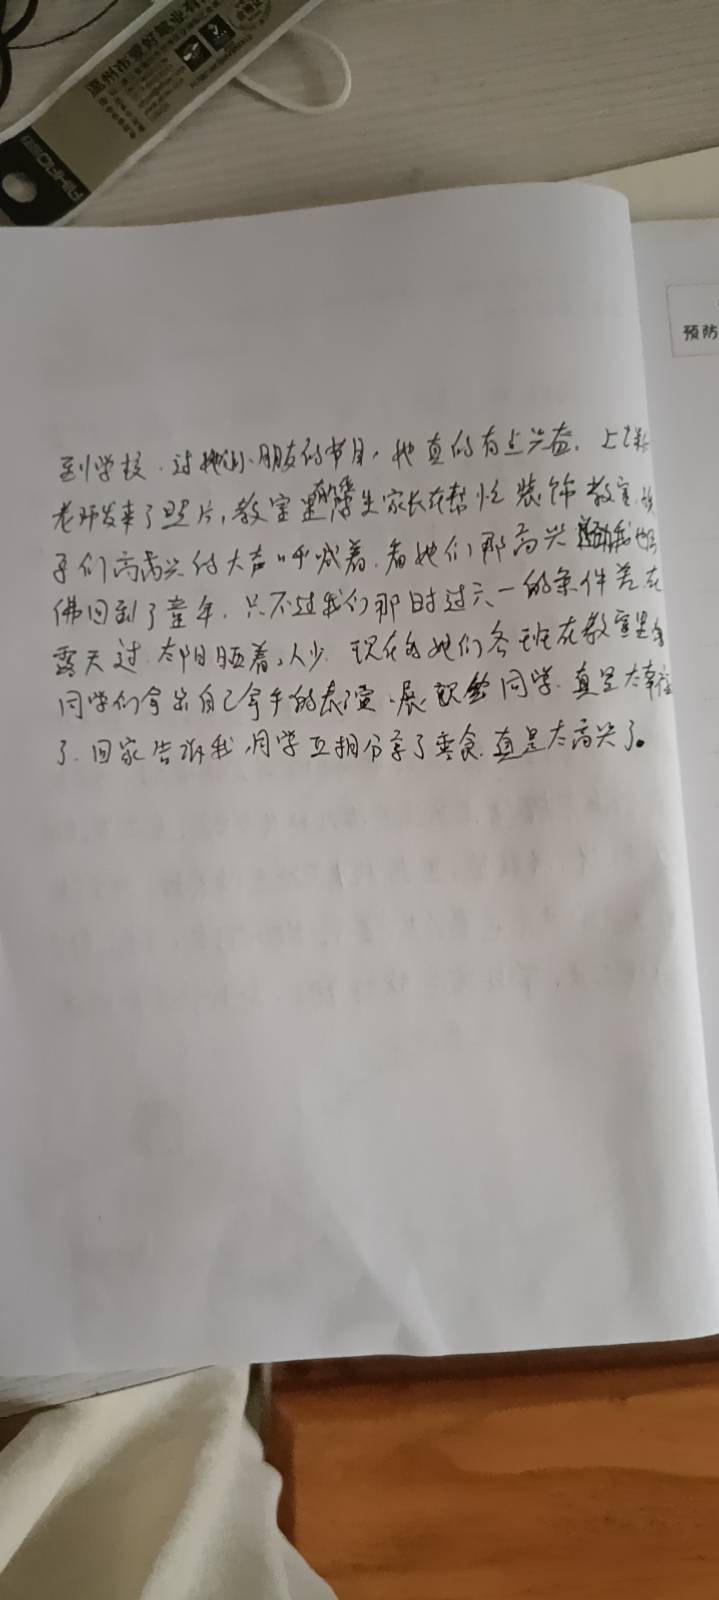 到学校.过她们小朋友的节目,她真的有点兴奋.上课
老师发来了照片,教室里有学生家长在帮忙装饰教室,孩
子们高高兴兴的大声呼喊着.看她们那高兴 我也仿
佛回到了童年.只不过我们那时过六一的条件差在
露天过.太阳晒着,人少.现在的她们各班在教室里
同学们拿出自己拿手的表演.展现给同学.真是太幸福
了.回家告诉我,同学互相分享了零食.真是太高兴了。
预防